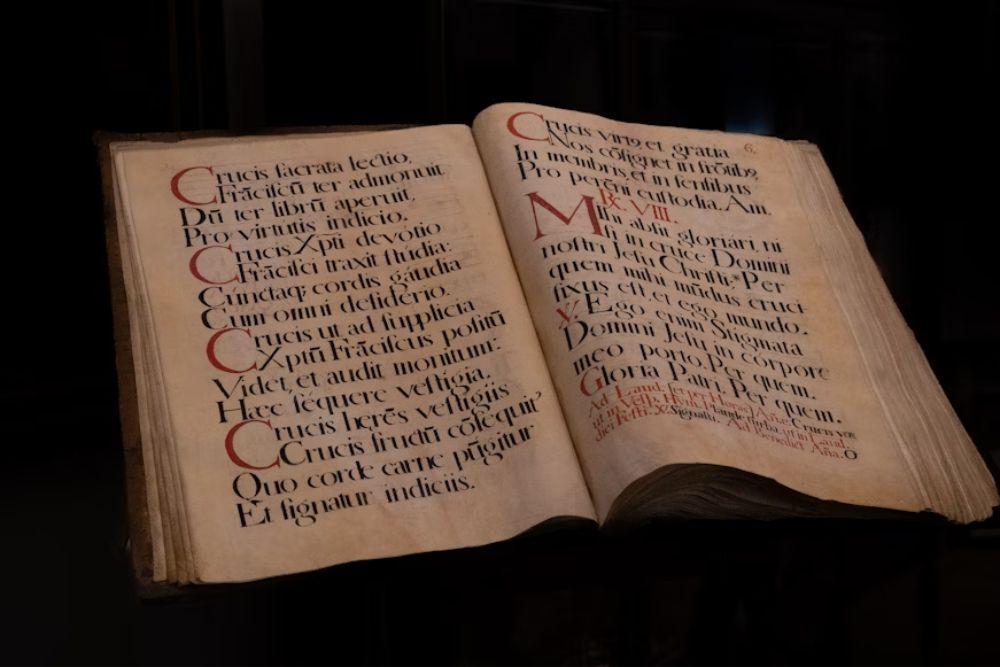 Crucis sacrata lectio,
Frãciscũ ter admonuit,
Dũ ter librũ aperuit,
Pro virtutis indicio.
Crucis Xpti devótio
Frãcisci traxit stúdia:
Cunctaq; cordis gáudia
Cum omni desidério.
Crucis ut ad supplicia
Xptũ Frãciscus positũ
Videt, et audit monitum:
Hæc séquere vestígia.
Crucis herẽs vestigiis
Crucis fructũ cõsequit'
Quo corde carne pũgitur
Et signatur indiciis.
6.
Crucis virtꝰ, et gratia
Nos cõsignet in frõtibꝰ,
In membris, et in sensibus
Pro perẽni custodia. Am.
℟. VIII.
Mihi absit gloriári, ni-
si in cruce Domini
nostri Jesu Christi; * Per
quem mihi mũdus cruci-
fixus est, et ego mundo.
℣. Ego enim Stigmata
Domini Jesu in córpore
meo porto. Per quem.
Gloria Patri. Per quem.
Ad Laud. et per Horas Añæ. Crucis vox
ut in Vesp. Hym. Plaude turba. ut in Laud.
diei Festi. ℣. Signasti. Ad Benedict. Aña. O